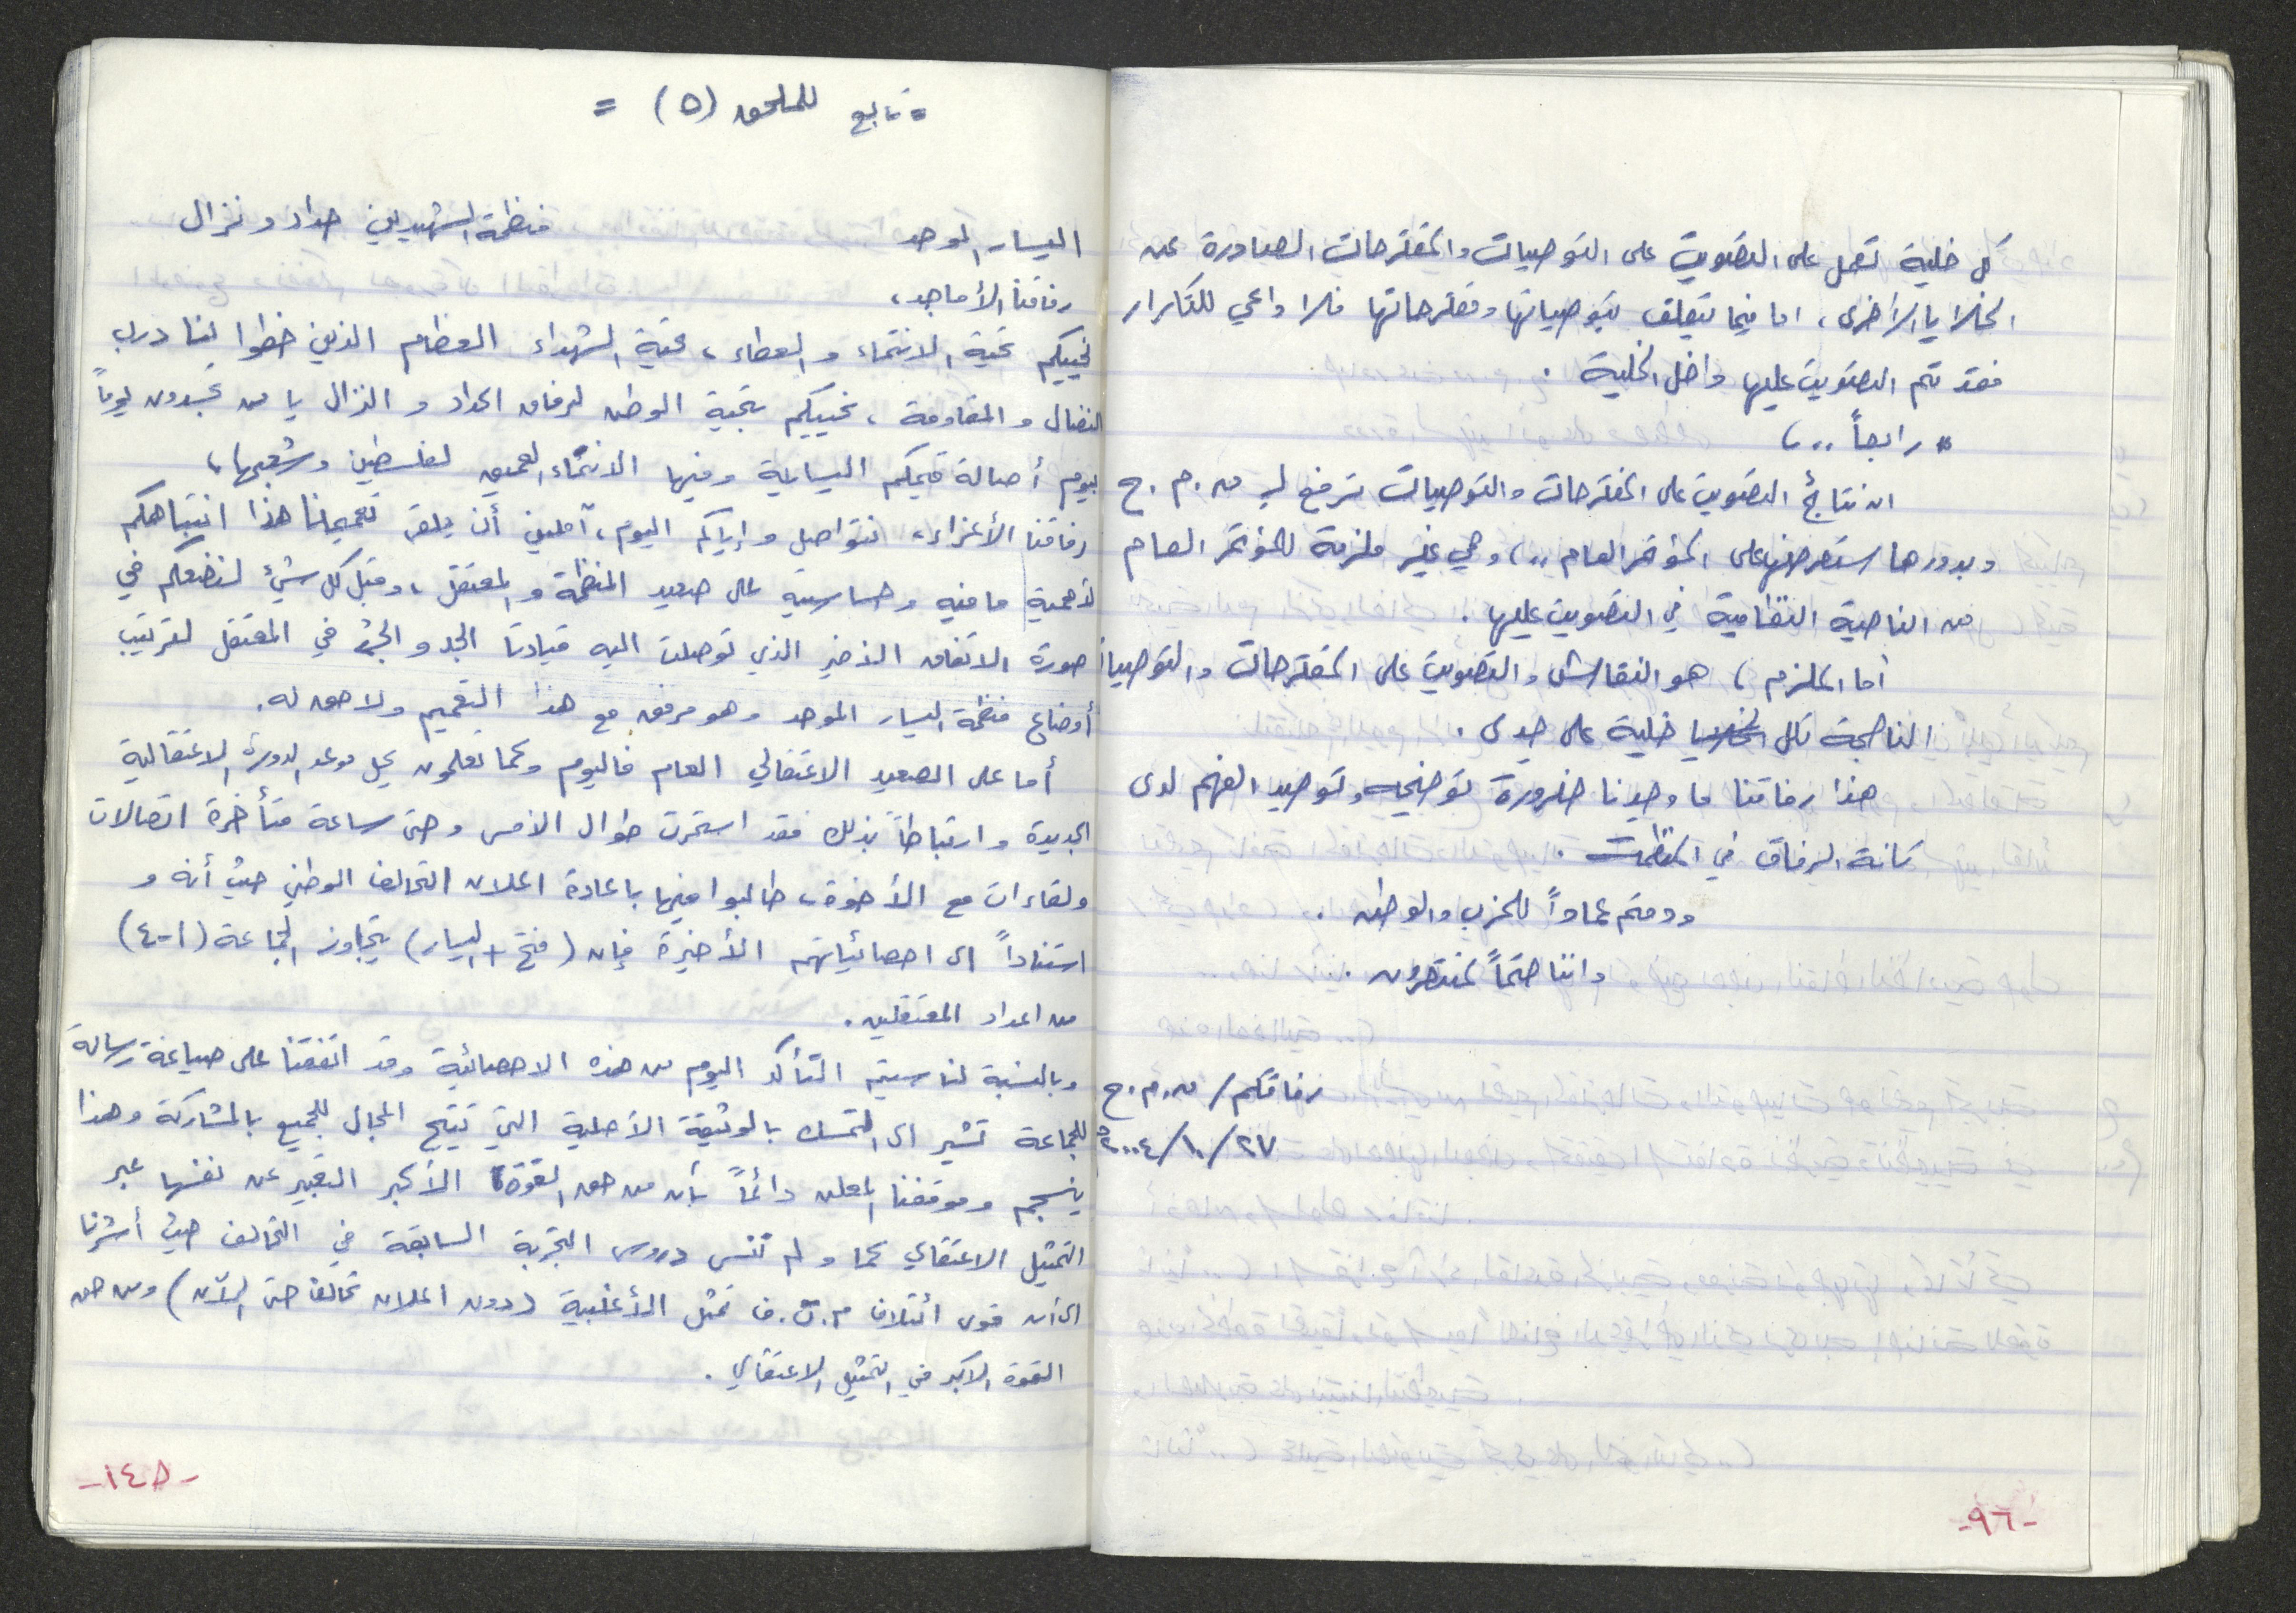 كل خلية تعمل على التصويت على التوصيات والمقترحات الصادرة عن
الخلايا الأخرى، اما فيما يتعلق بتوصياتها ومقترحاتها فلا داعي للتكرار
فقد تم التصويت عليها داخل الخلية .
* رابعاً ..،
ان نتائج التصويت على المقترحات والتوصيات ترفع لـ م.م.ح
وبدورها ستعرضها على المؤتمر العام ..، وهي غير ملزمة للمؤتمر العام
من الناحية النظامية في التصويت عليها .
أما الملزم ، هو النقاش والتصويت على المقترحات والتوصيات
الناضجة لكل خلية على حدى .
هذا رفاقنا ما وجدنا ضرورة توضيحه وتوحيد الفهم لدى
كافة الرفاق في المنظمة .
ودمتم عماداً للحزب والوطن .
واننا حتماً لمنتصرون .
رفاقكم/ م.م.ح
٢٧/١٠/٢٠٠٤
-٩٦-
= تابع للملحق (٥) =
اليسار الموحد منظمة الشهيدين حداد ونزال
رفاقنا الأماجد،
نحييكم تحية الانتماء والعطاء، تحية الشهداء العظام الذين خطوا لنا درب
النضال والمقاومة، نحييكم بتحية الوطن لرفاق الحداد والنزال يا من تجسدون يوماً
بيوم أصالة قيمكم اليسارية وفيها الانتماء العميق لفلسطين وشعبها،
رفاقنا الأعزاء، نتواصل وإياكم اليوم، آملين أن يلقى تعميمنا هذا انتباهكم
لأهمية ما فيه وحساسيته على صعيد المنظمة والمعتقل، وقبل كل شيء لنضعكم في
صورة الاتفاق الأخير الذي توصلت اليه قيادتا الجد والجش في المعتقل لترتيب
أوضاع منظمة اليسار الموحد وهو مرفق مع هذا التعميم ولاحق له.
أما على الصعيد الاعتقالي العام فاليوم وكما تعلمون يحل موعد الدورة الاعتقالية
الجديدة وارتباطاً بذلك فقد استمرت طوال الأمس وحتى ساعة متأخرة اتصالات
ولقاءات مع الأخوة، طالبوا فيها باعادة اعلان التحالف الوطني حيث أنه و
استناداً الى احصائياتهم الأخيرة فإن (فتح + اليسار) يتجاوز الجماعة (١-٤)
من اعداد المعتقلين.
وبالنسبة لنا سيتم التأكد اليوم من هذه الاحصائية وقد اتفقنا على صياغة رسالة
للجماعة تشير الى التمسك بالوثيقة الأصلية التي تتيح المجال للجميع بالمشاركة وهذا
ينسجم وموقفنا المعلن دائماً بأن من حق القوة الأكبر التعبير عن نفسها عبر
التمثيل الاعتقالي كما ولم ننس دروس التجربة السابقة في التحالف حيث أشرنا
الى أن قوى ائتلاف م.ت.ف تمثل الأغلبية (دون اعلان تحالف حتى الآن) ومن حق
القوة الأكبر في التمثيل الاعتقالي .
-١٤٥-